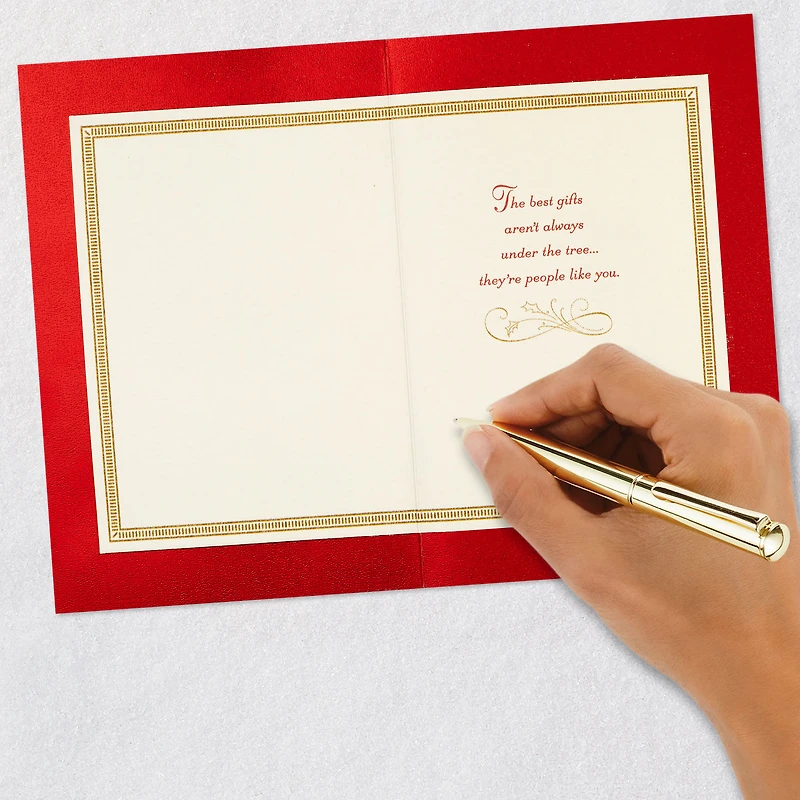 The best gifts
aren't always
under the tree...
they're people like you.